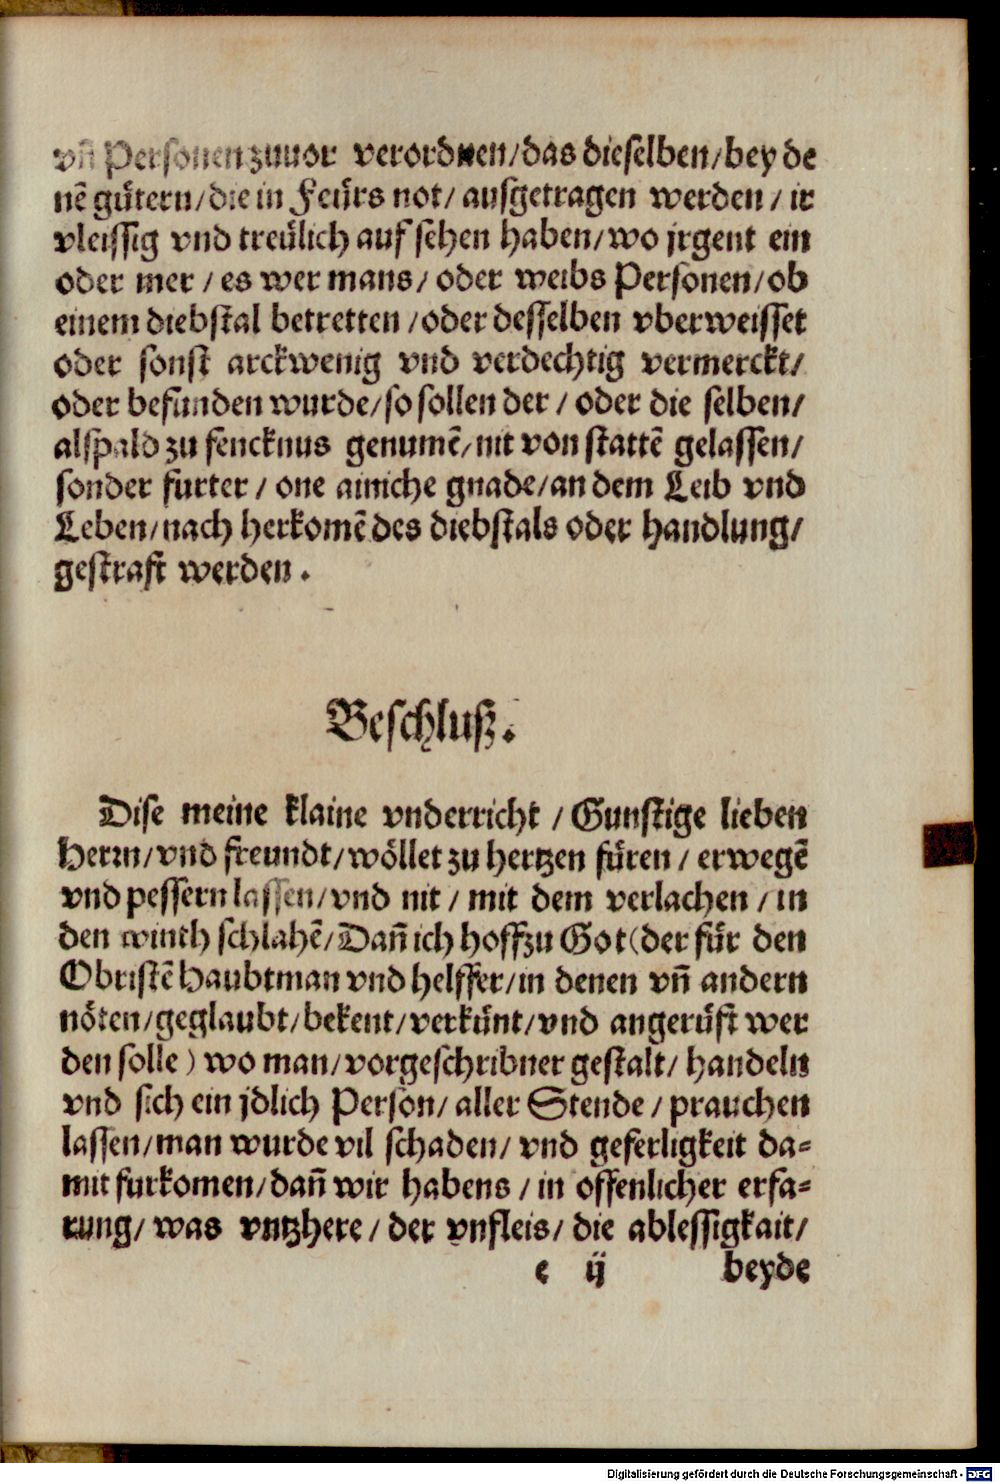 vñ Personen zuuor verordnen/das dieselben/bey de
nē gütern/die in Feürs not/ ausgetragen werden / ir
vleissig vnd treülich auf sehen haben/wo jrgent ein
oder mer / es wer mans/ oder weibs Personen/ob
einem diebstal betretten /oder desselben vberweisset
oder sonst arckwenig vnd verdechtig vermerckt/
oder befunden wurde/so sollen der / oder die selben/
alspald zu fencknus genumē/nit von stattē gelassen/
sonder furter / one ainiche gnade/an dem Leib vnd
Leben/nach herkomē des diebstals oder handlung/
gestraft werden .
Beschluß.
Dise meine klaine vnderricht / Gunstige lieben
Herrn/vnd freundt/wöllet zu hertzen füren / erwegē
vnd pessern lassen/vnd nit / mit dem verlachen / in
den winth schlahē/Dañ ich hoff zu Got(der für den
Obristē Haubtman vnd helffer/in denen vñ andern
nöten/geglaubt/bekent/verkünt/vnd angerüft wer
den solle) wo man/vorgeschribner gestalt/ handeln
vnd sich ein jdlich Person/ aller Stende / prauchen
lassen/man wurde vil schaden/ vnd geferligkeit da-
mit furkomen/dañ wir habens / in offenlicher erfa-
rung/ was vntzhere / der vnfleis/ die ablessigkait/
e ij beyde
Digitalisierung gefördert durch die Deutsche Forschungsgemeinschaft - DFG